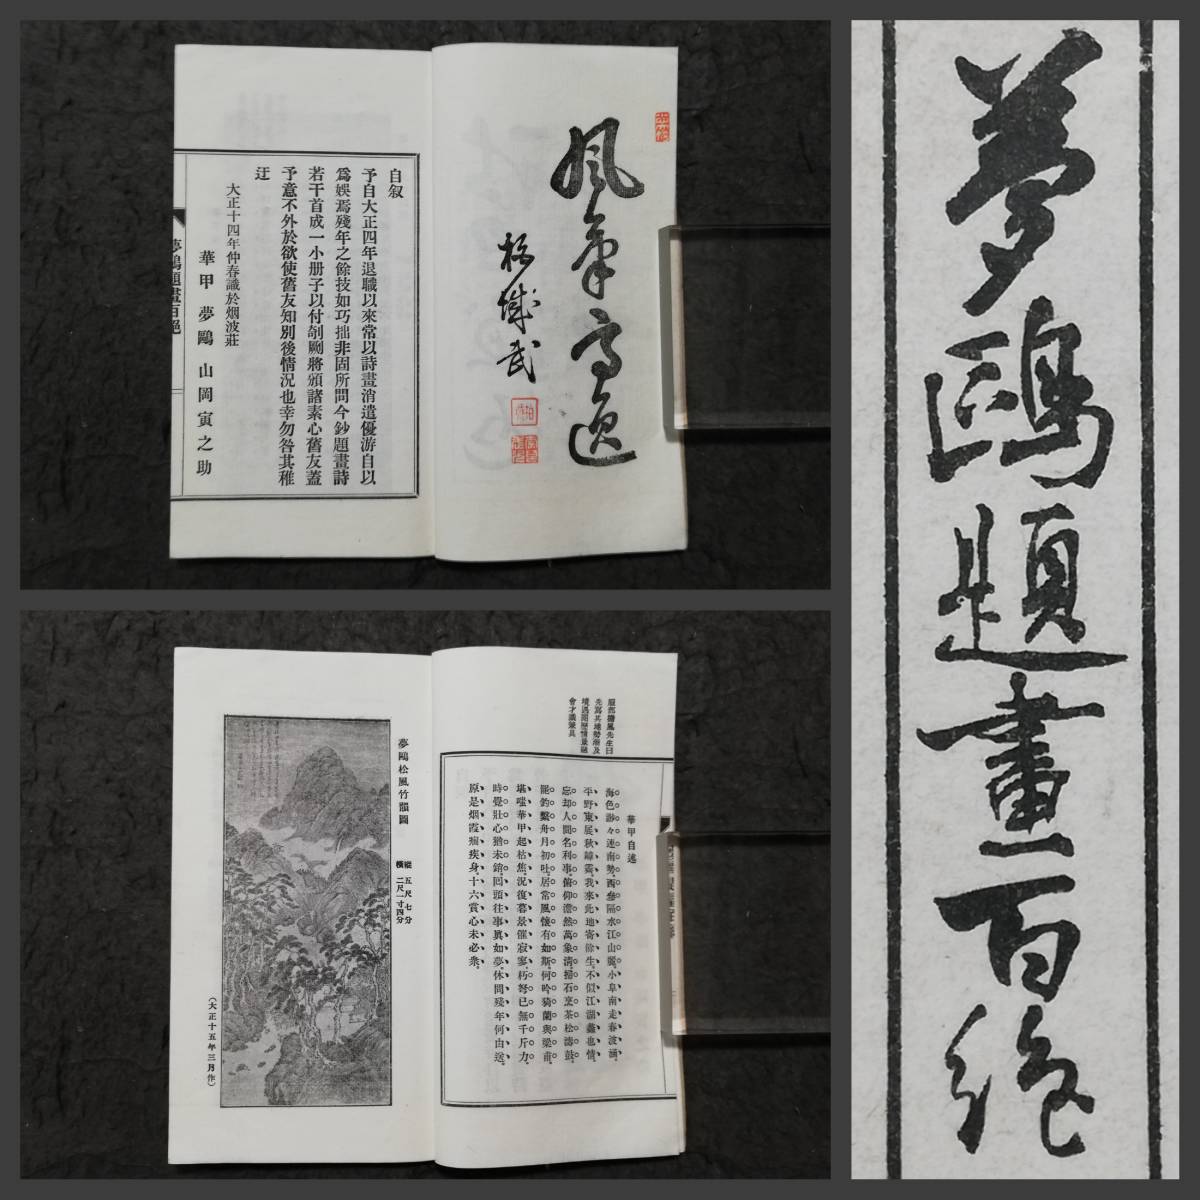 風氣高逸
柏城武
自叙
予自大正四年退職以來常以詩畫消遣優游自以
爲娯焉殘年之餘技如巧拙非固所問今鈔題畫詩
若干首成一小册子以付剞劂將頒諸素心舊友蓋
予意不外於欲使舊友知別後情況也幸勿咎其稚
迂
大正十四年仲春識於烟波莊
華甲 夢鷗 山岡寅之助
夢鷗題畫百絕
服部擔風先生曰
先寫其地勢漸及
境遇閲歷情景融
會才識兼具
華甲自述
海色渺々連南勢。西參隔水江山麗。小阜南走春波涵。
平野東展秋罅霽。我來此地寄餘生。不似江湖蠡也情。
忘却人間名利事。俯仰澹然萬象清。掃石烹茶松濤鼓。
罷釣繫舟月初吐。居常風懷有如斯。何吟騎蘭與梁甫。
堪嗤華甲起枯焦。況復暮景催寂寥。朽弩已無千斤力。
時覺壯心猶未銷。回頭往事眞如夢。休問殘年何由送。
原是烟霞痼疾身。十六賞心未必衆。
夢鷗松風竹韻圖
縱 五尺七分
橫 二尺一寸四分
(大正十五年三月作)
夢鷗題畫百絕